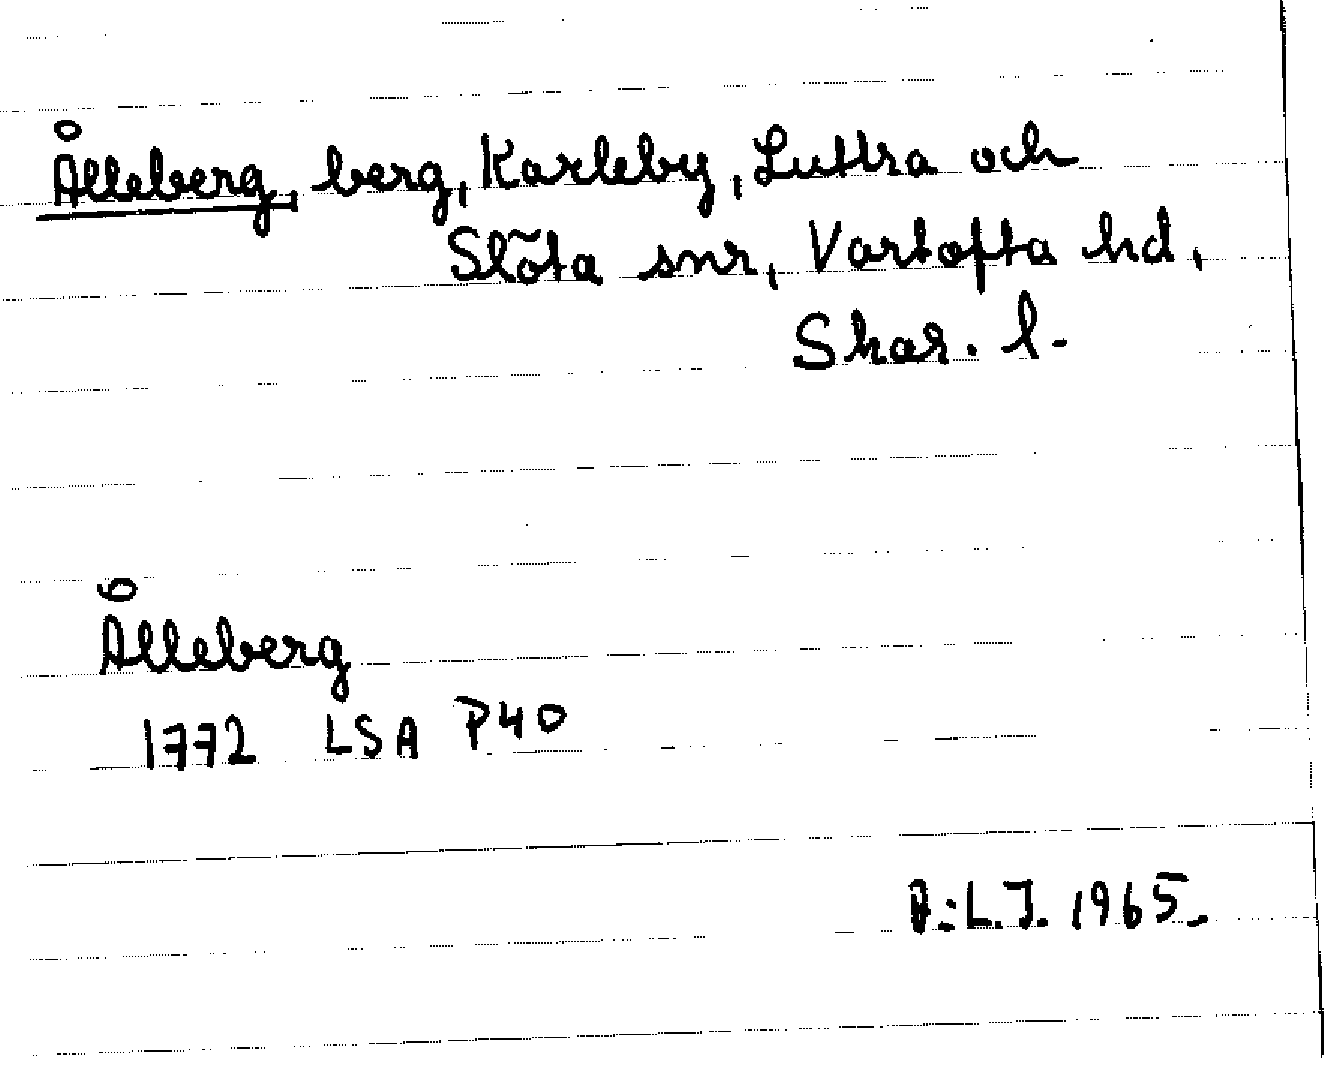 Ålleberg, berg, Karleby, Luttra och
Slöta snr, Vartofta hd,
Skar. l.
Ålleberg
1772 LSA P40
P:L.J. 1965.